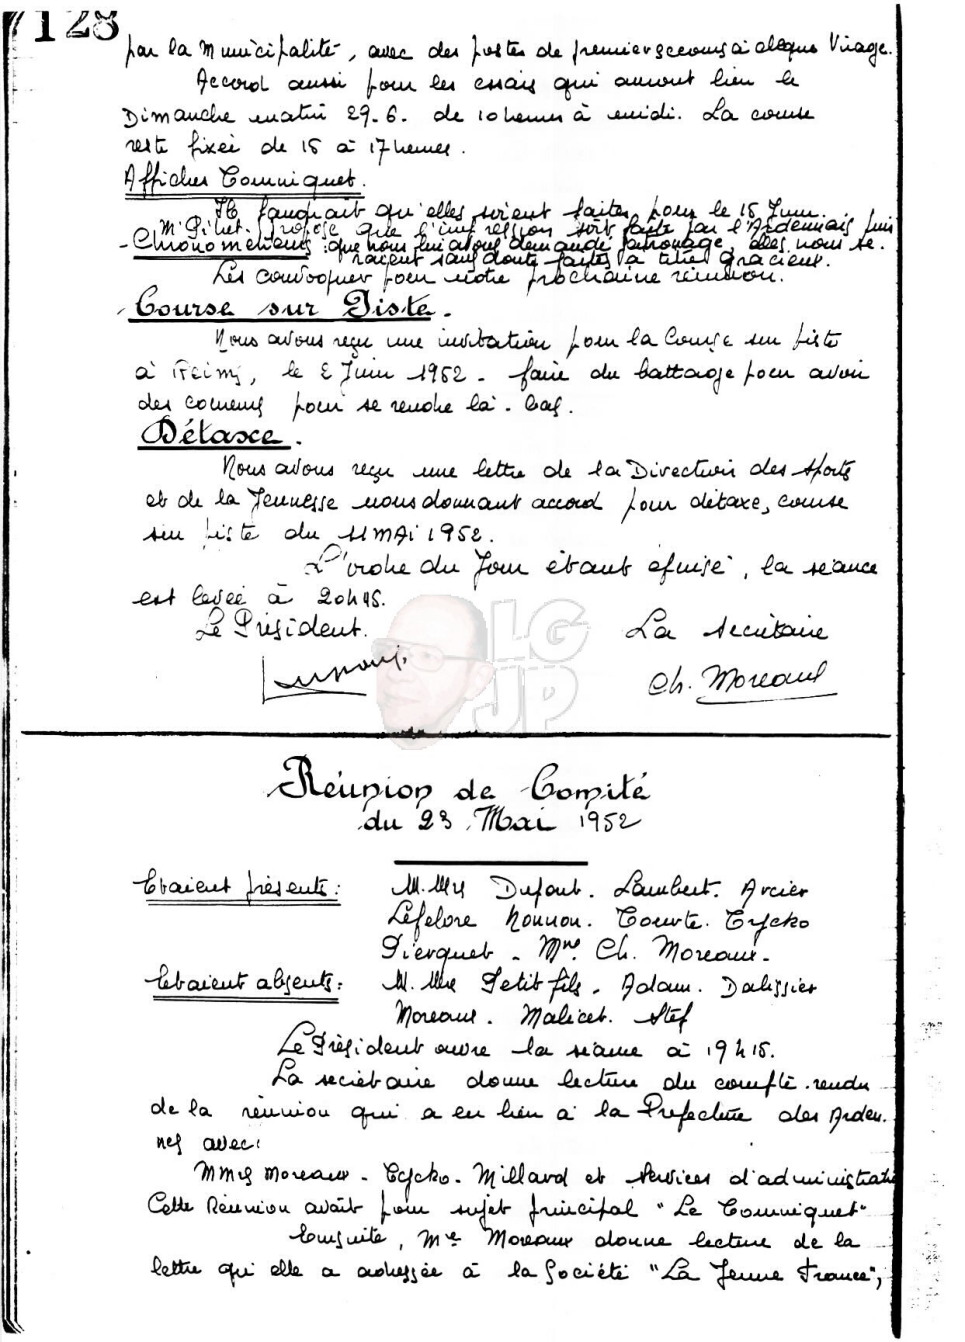 128
par la Municipalité, avec des postes de premiers secours à chaque Virage.
Accord aussi pour les essais qui auront lieu le
Dimanche matin 29.6. de 10 heures à midi. La course
reste fixée de 15 à 17 heures.
Affiches Commiquet.
Il faudrait qu'elles soient faites pour le 15 Juin.
Mr Pilut. propose que l'impression soit faite par l'Ardennais puis
- Chronometreurs : que nous lui avons demandé patronage, elles nous se-
raient sans doute faites à titre gracieux.
Les convoquer pour notre prochaine réunion.
Course sur Piste.
Nous avons reçu une invitation pour la Course sur piste
à Reims, le 2 Juin 1952 - faire du battage pour avoir
des coureurs pour se rendre là-bas.
Détaxe.
Nous avons reçu une lettre de la Direction des sports
et de la Jeunesse nous donnant accord pour détaxe, course
sur piste du 11 MAI 1952.
L'ordre du Jour étant épuisé, la séance
est levée à 20h45.
Le Président. La Secrétaire
Ch. Moreaux
LG
JP
Réunion de Comité
du 23 Mai 1952
Etaient présents : M.Mrs Dufout. Lambert. Arcier
Lefelore Nounon. Courte. Cycko
Pierquet - Mme Ch. Moreaux -
Etaient absents : M.Mrs Petit fils. Adam. Dalissier
Moreaux. Malicet. Stef
Le Président ouvre la séance à 19h15.
La secrétaire donne lecture du compte-rendu
de la réunion qui a eu lieu à la Préfecture des Arden-
nes avec :
MMrs Moreaux - Cycko. Millard et Services d'administratio
Cette Réunion avait pour sujet principal "Le Commiquet"
Ensuite, Me Moreaux donne lecture de la
lettre qu'elle a adressée à la Société "La Jeune France",